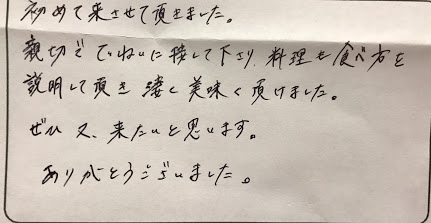 初めて来させて頂きました。
親切でていねいに接して下さり、料理も食べ方を
説明して頂き凄く美味く頂けました。
ぜひ又、来たいと思います。
ありがとうございました。